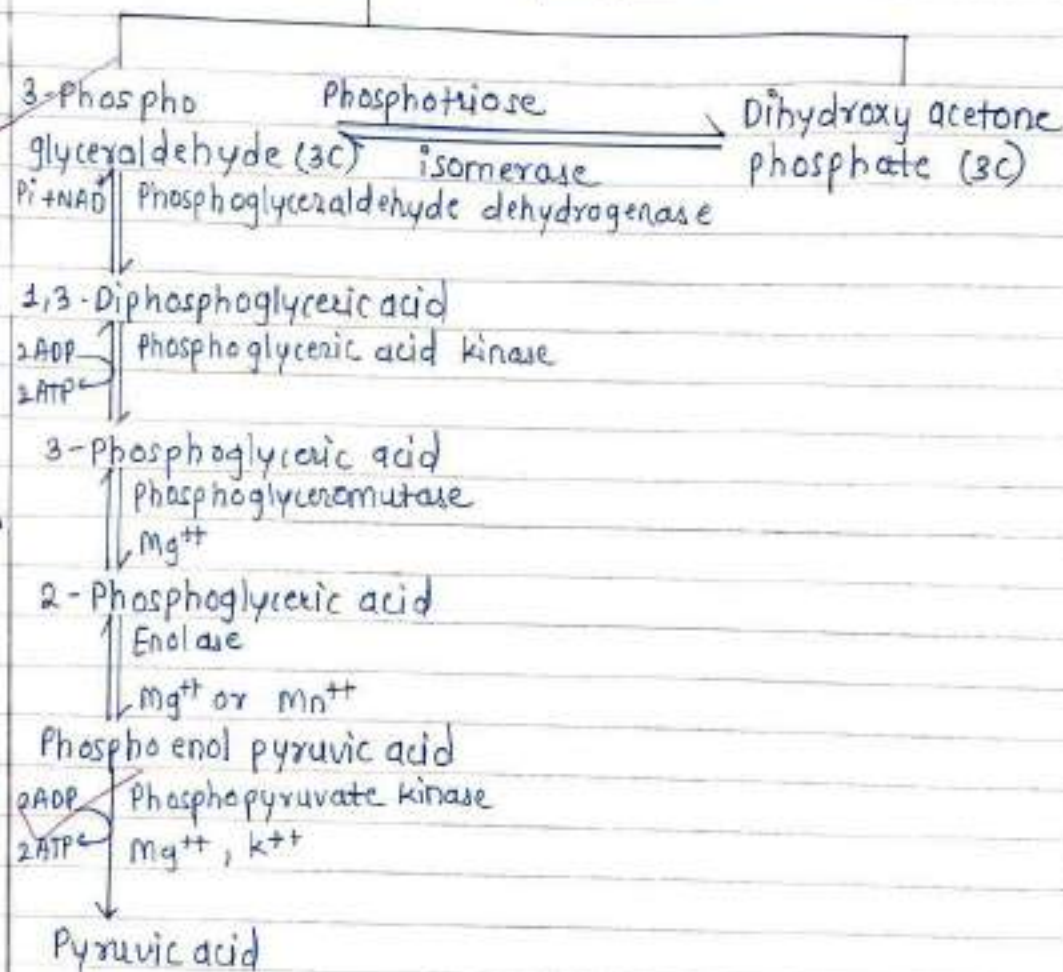 3-Phospho Phosphotriose Dihydroxy acetone
glyceraldehyde (3C) isomerase phosphate (3C)
Pi+NAD Phosphoglyceraldehyde dehydrogenase
1,3-Diphosphoglyceric acid
2ADP Phosphoglyceric acid kinase
2ATP
3-Phosphoglyceric acid
Phosphoglyceromutase
Mg++
2-Phosphoglyceric acid
Enolase
Mg++ or Mn++
Phospho enol pyruvic acid
2ADP Phosphopyruvate kinase
2ATP Mg++, K++
Pyruvic acid